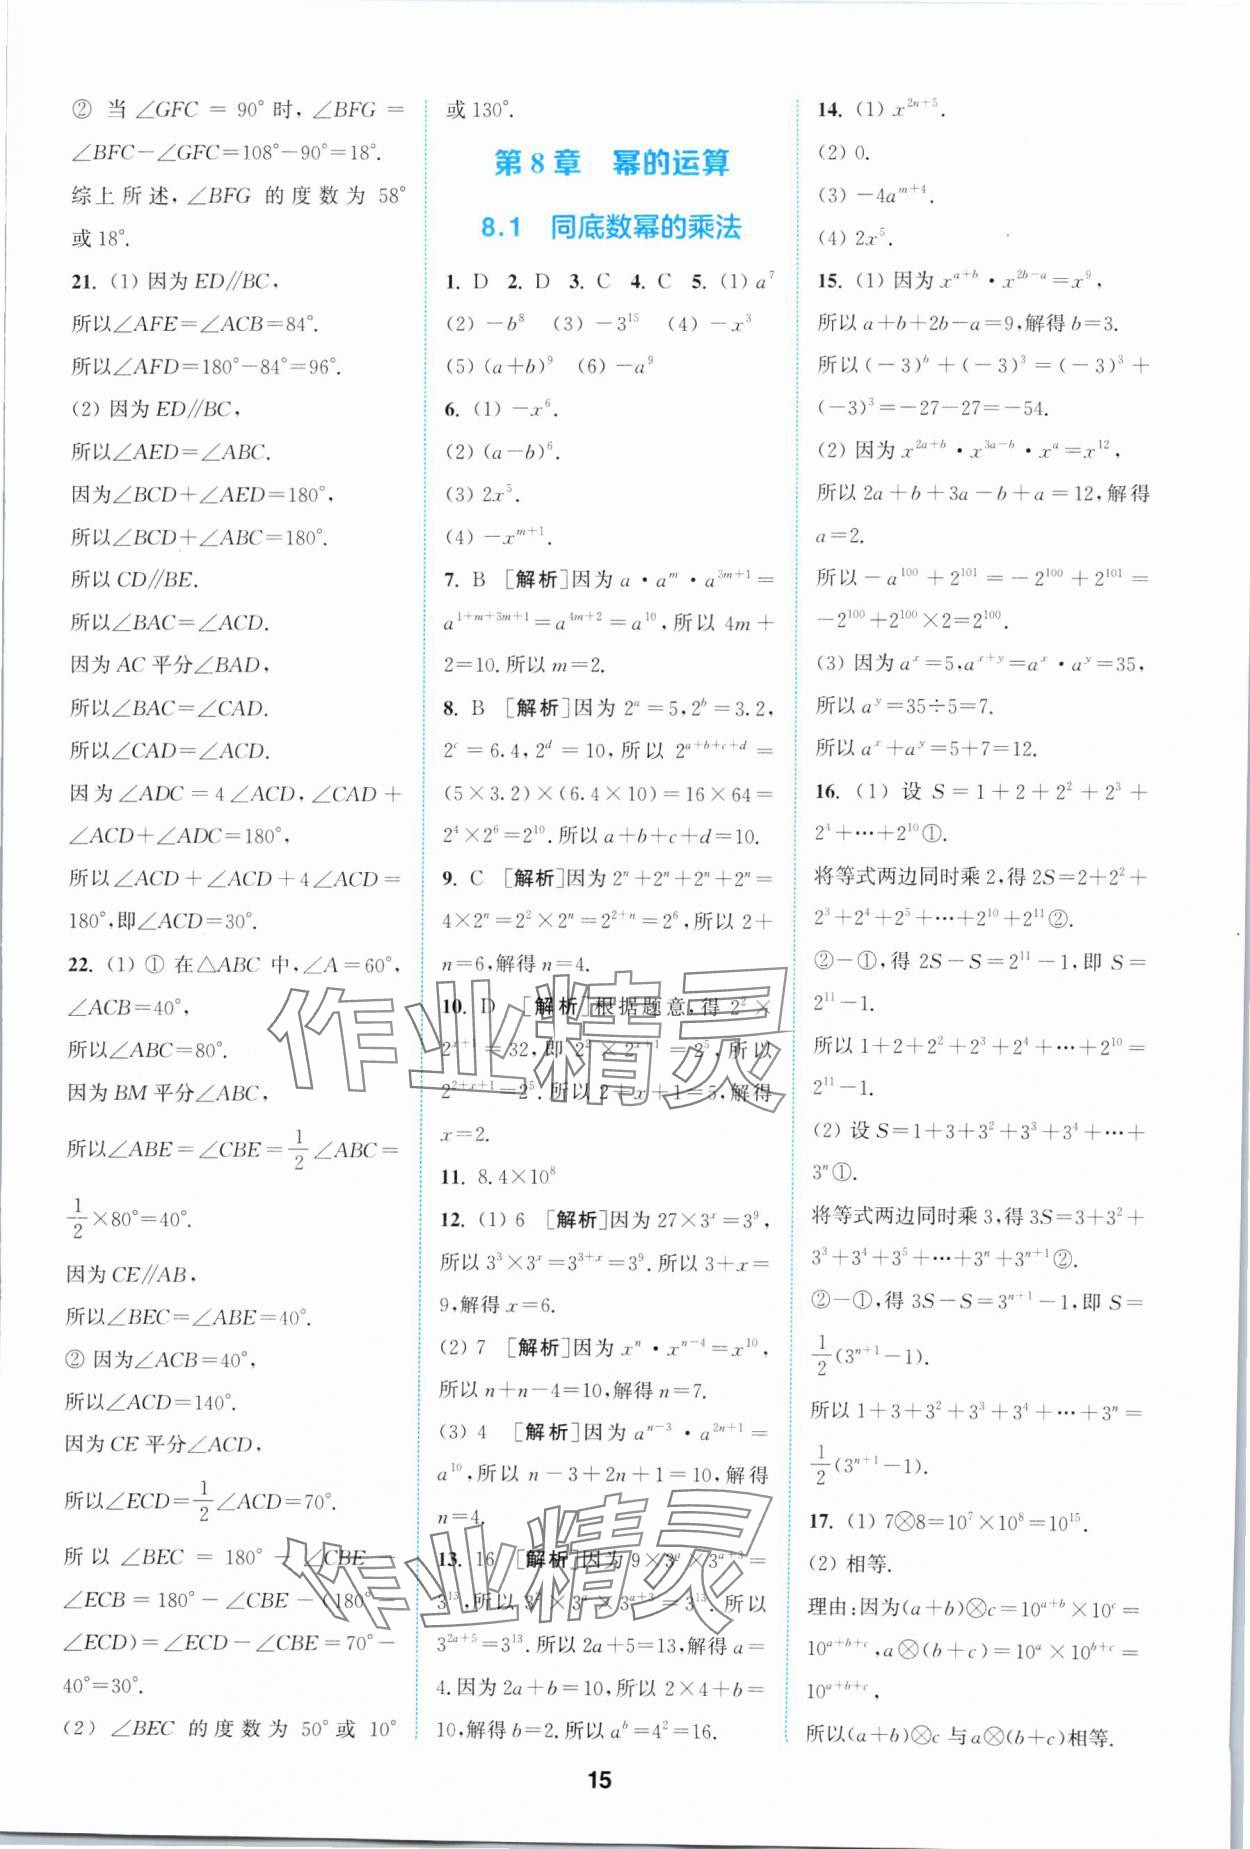 ② 当∠GFC = 90°时,∠BFG =
∠BFC-∠GFC=108°-90°=18°.
综上所述,∠BFG 的度数为 58°
或18°.
21. (1) 因为ED∥BC,
所以∠AFE=∠ACB=84°.
所以∠AFD=180°-84°=96°.
(2) 因为ED∥BC,
所以∠AED=∠ABC.
因为∠BCD+∠AED=180°,
所以∠BCD+∠ABC=180°.
所以CD∥BE.
所以∠BAC=∠ACD.
因为 AC 平分∠BAD,
所以∠BAC=∠CAD.
所以∠CAD=∠ACD.
因为∠ADC=4∠ACD,∠CAD+
∠ACD+∠ADC=180°,
所以∠ACD+∠ACD+4∠ACD=
180°,即∠ACD=30°.
22. (1) ① 在△ABC 中,∠A=60°,
∠ACB=40°,
所以∠ABC=80°.
因为 BM 平分∠ABC,
所以∠ABE=∠CBE=1/2∠ABC=
1/2×80°=40°.
因为CE∥AB,
所以∠BEC=∠ABE=40°.
② 因为∠ACB=40°,
所以∠ACD=140°.
因为 CE 平分∠ACD,
所以∠ECD=1/2∠ACD=70°.
所以∠BEC = 180° - ∠CBE -
∠ECB=180°-∠CBE-(180°-
∠ECD)=∠ECD-∠CBE=70°-
40°=30°.
(2) ∠BEC 的度数为 50°或 10°
或130°.
第8章 幂的运算
8.1 同底数幂的乘法
1. D 2. D 3. C 4. C 5. (1) a⁷
(2) -b⁸ (3) -3¹⁵ (4) -x³
(5) (a+b)⁹ (6) -a⁹
6. (1) -x⁶.
(2) (a-b)⁶.
(3) 2x⁵.
(4) -x^{m+1}.
7. B [解析]因为 a·a^{m}·a^{3m+1}=
a^{1+m+3m+1}=a^{4m+2}=a^{10},所以 4m+
2=10.所以m=2.
8. B [解析]因为 2^{a}=5,2^{b}=3.2,
2^{c}=6.4,2^{d}=10,所以 2^{a+b+c+d}=
(5×3.2)×(6.4×10)=16×64=
2⁴×2⁶=2¹⁰.所以a+b+c+d=10.
9. C [解析]因为2^{n}+2^{n}+2^{n}+2^{n}=
4×2^{n}=2²×2^{n}=2^{2+n}=2⁶,所以 2+
n=6,解得n=4.
10. D [解析]根据题意,得 2²×
2^{x+1}=32,即 2²×2^{x+1}=2⁵,所以
2^{2+x+1}=2⁵.所以2+x+1=5,解得
x=2.
11. 8.4×10⁸
12. (1) 6 [解析]因为27×3^{x}=3⁹,
所以3³×3^{x}=3^{3+x}=3⁹.所以3+x=
9,解得x=6.
(2) 7 [解析]因为 x^{n}·x^{n-4}=x^{10},
所以n+n-4=10,解得n=7.
(3) 4 [解析]因为 a^{n-3}·a^{2n+1}=
a^{10},所以 n-3+2n+1=10,解得
n=4.
13. 16 [解析]因为9×3^{a}×3^{a+3}=
3¹³,所以 3²×3^{a}×3^{a+3}=3¹³.所以
3^{2a+5}=3¹³.所以2a+5=13,解得a=
4.因为2a+b=10,所以2×4+b=
10,解得b=2.所以a^{b}=4²=16.
14. (1) x^{2n+5}.
(2) 0.
(3) -4a^{m+4}.
(4) 2x⁵.
15. (1) 因为x^{a+b}·x^{2b-a}=x⁹,
所以a+b+2b-a=9,解得b=3.
所以(-3)^{b}+(-3)³=(-3)³+
(-3)³=-27-27=-54.
(2) 因为x^{2a+b}·x^{3a-b}·x^{a}=x^{12},
所以 2a+b+3a-b+a=12,解得
a=2.
所以-a^{100}+2^{101}=-2^{100}+2^{101}=
-2^{100}+2^{100}×2=2^{100}.
(3) 因为a^{x}=5,a^{x+y}=a^{x}·a^{y}=35,
所以a^{y}=35÷5=7.
所以a^{x}+a^{y}=5+7=12.
16. (1) 设 S=1+2+2²+2³+
2⁴+⋯+2¹⁰①.
将等式两边同时乘2,得2S=2+2²+
2³+2⁴+2⁵+⋯+2¹⁰+2¹¹②.
②-①,得 2S-S=2¹¹-1,即 S=
2¹¹-1.
所以1+2+2²+2³+2⁴+⋯+2¹⁰=
2¹¹-1.
(2) 设S=1+3+3²+3³+3⁴+⋯+
3^{n}①.
将等式两边同时乘3,得3S=3+3²+
3³+3⁴+3⁵+⋯+3^{n}+3^{n+1}②.
②-①,得3S-S=3^{n+1}-1,即 S=
1/2(3^{n+1}-1).
所以1+3+3²+3³+3⁴+⋯+3^{n}=
1/2(3^{n+1}-1).
17. (1) 7⊗8=10⁷×10⁸=10¹⁵.
(2) 相等.
理由:因为(a+b)⊗c=10^{a+b}×10^{c}=
10^{a+b+c},a⊗(b+c)=10^{a}×10^{b+c}=
10^{a+b+c},
所以(a+b)⊗c与a⊗(b+c)相等.
作业精灵
作业精灵
15